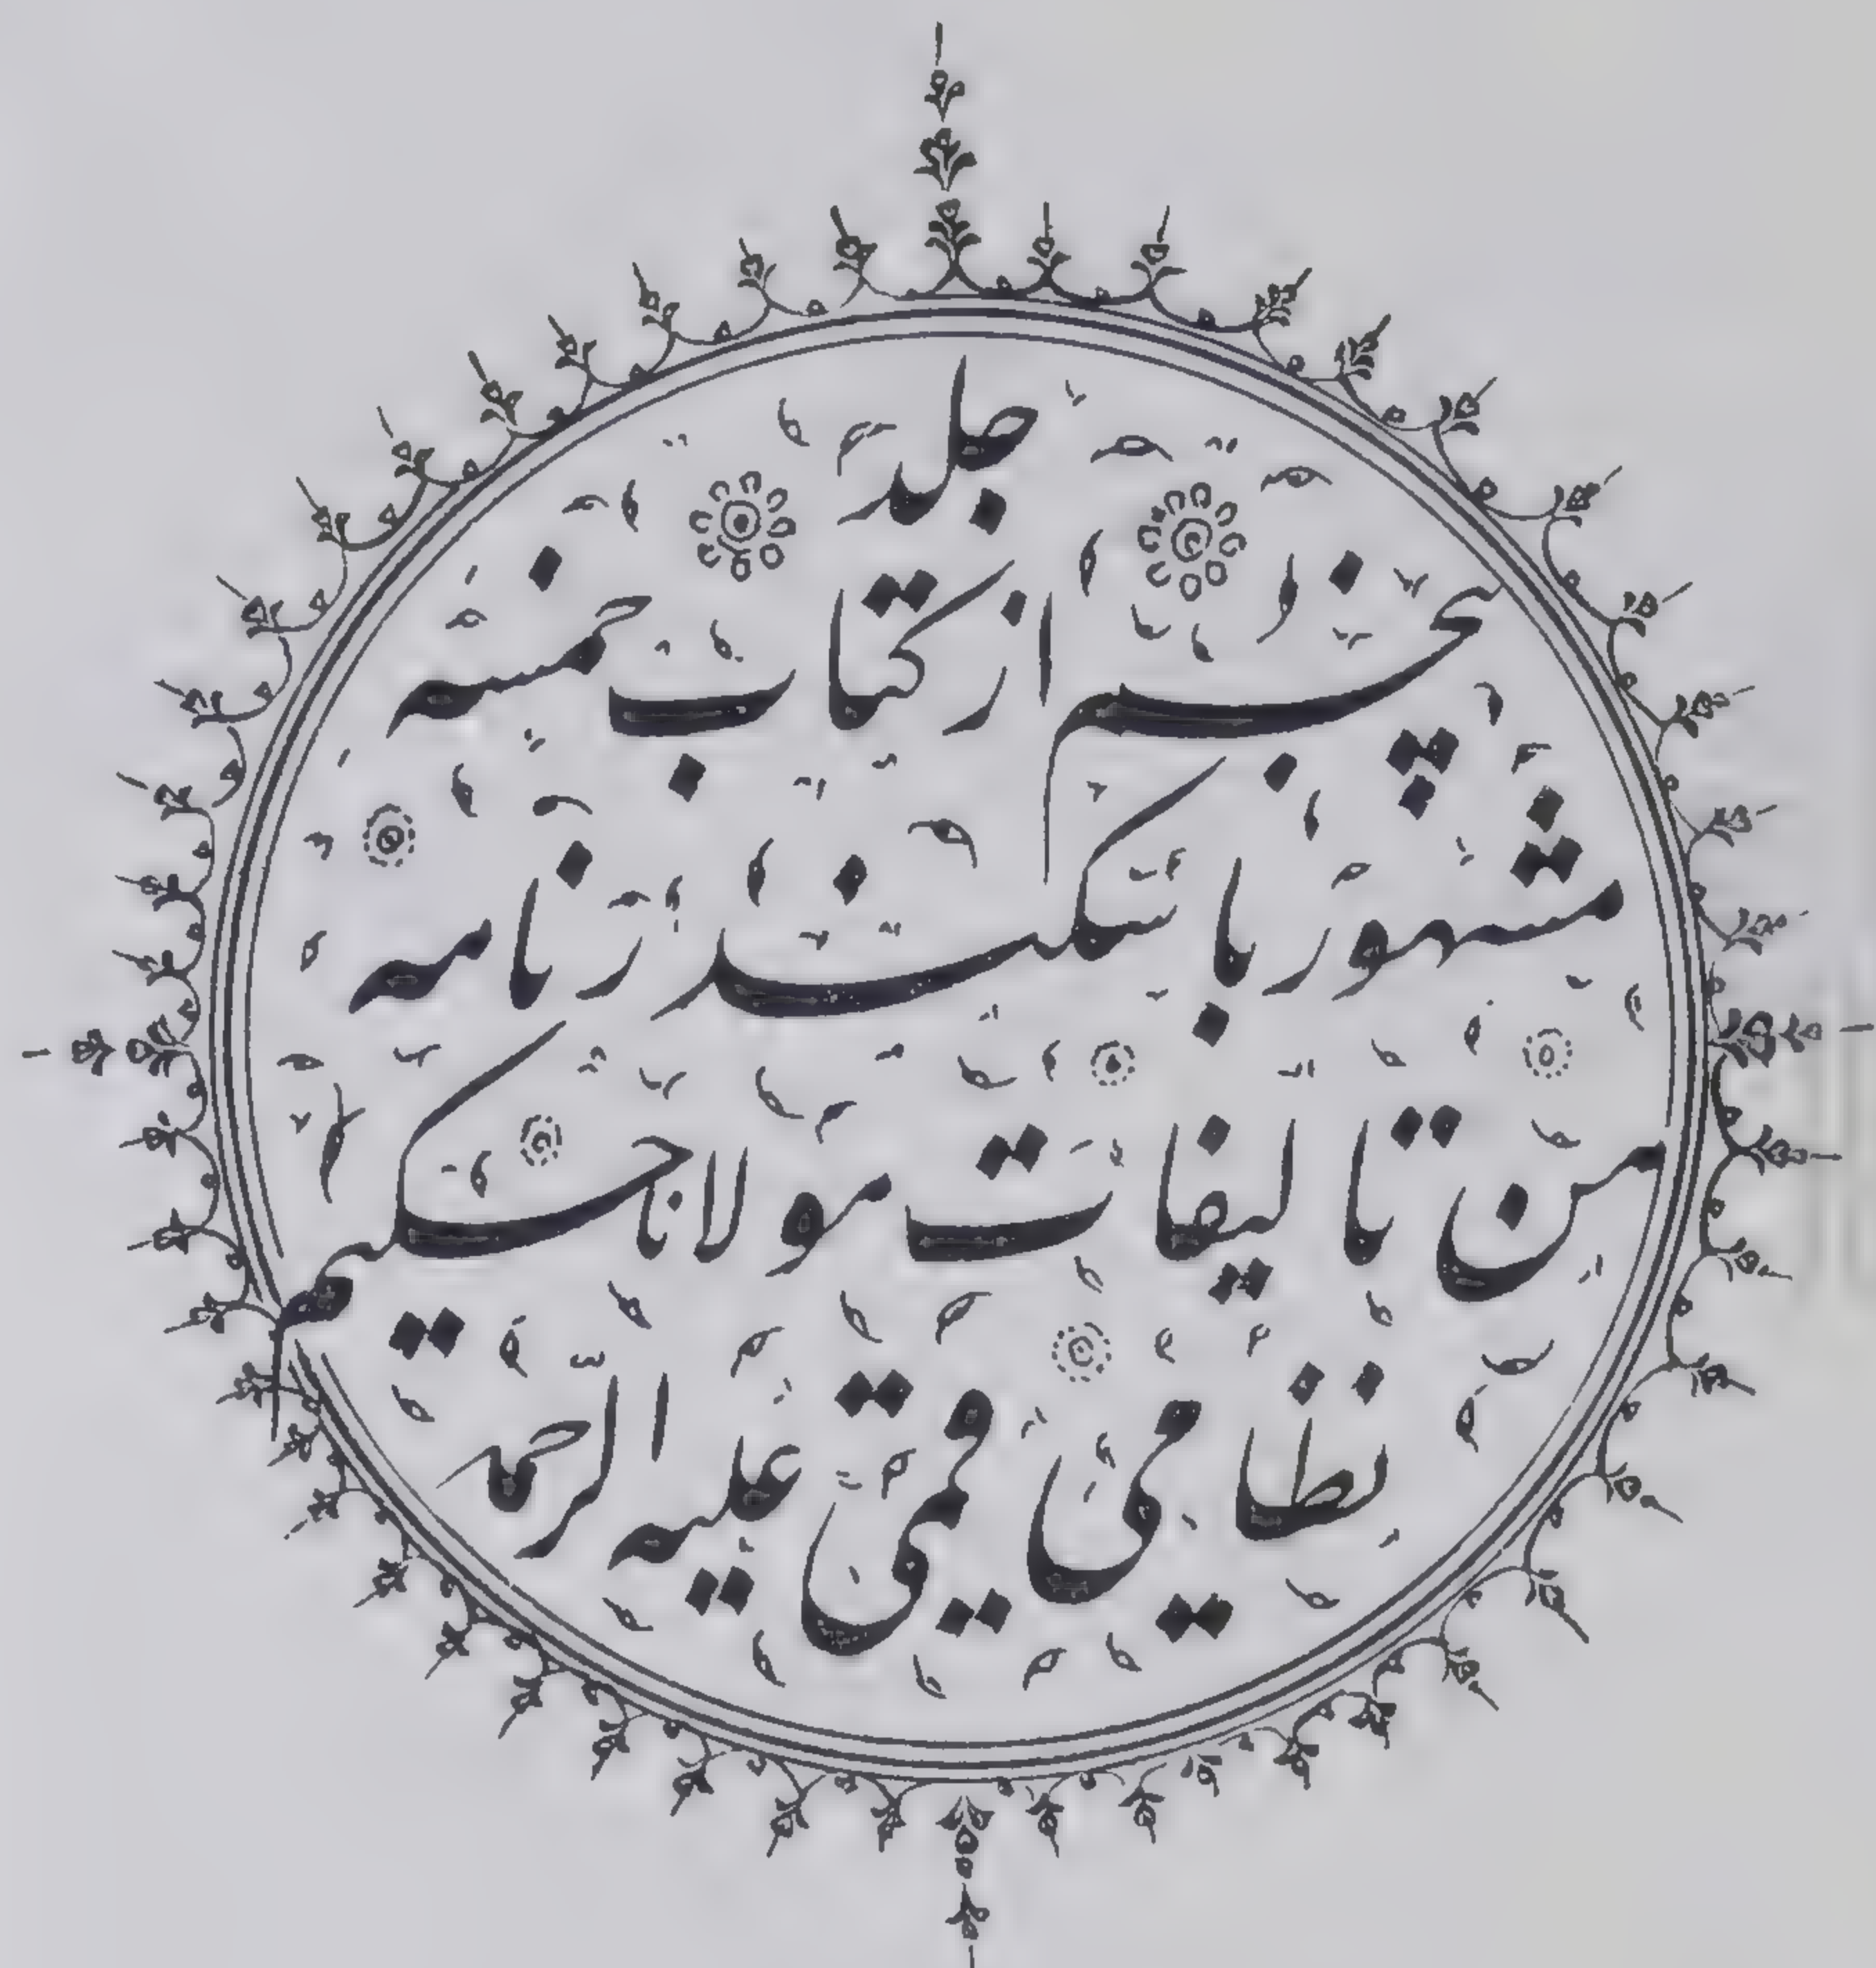 جلد
پنجم از کتاب خمسه
مشهور با سکندر نامه
من تالیفات مولانا حکیم
نظامی قمی علیه الرحمه